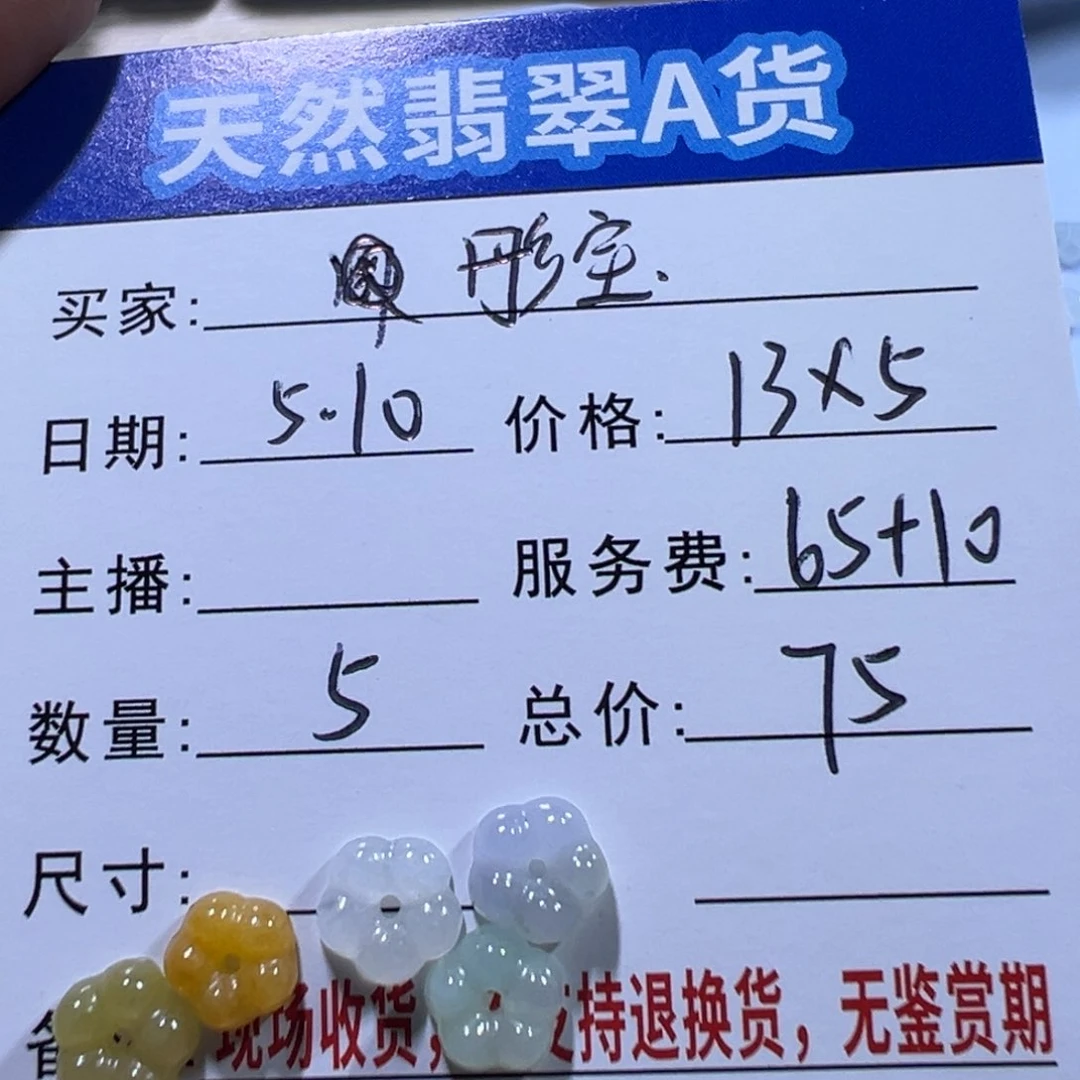 天然翡翠A货
买家: 彤宝.
日期: 5.10 价格: 13×5
主播: 服务费: 65+10
数量: 5 总价: 75
尺寸:
现场收货, 持退换货，无鉴赏期